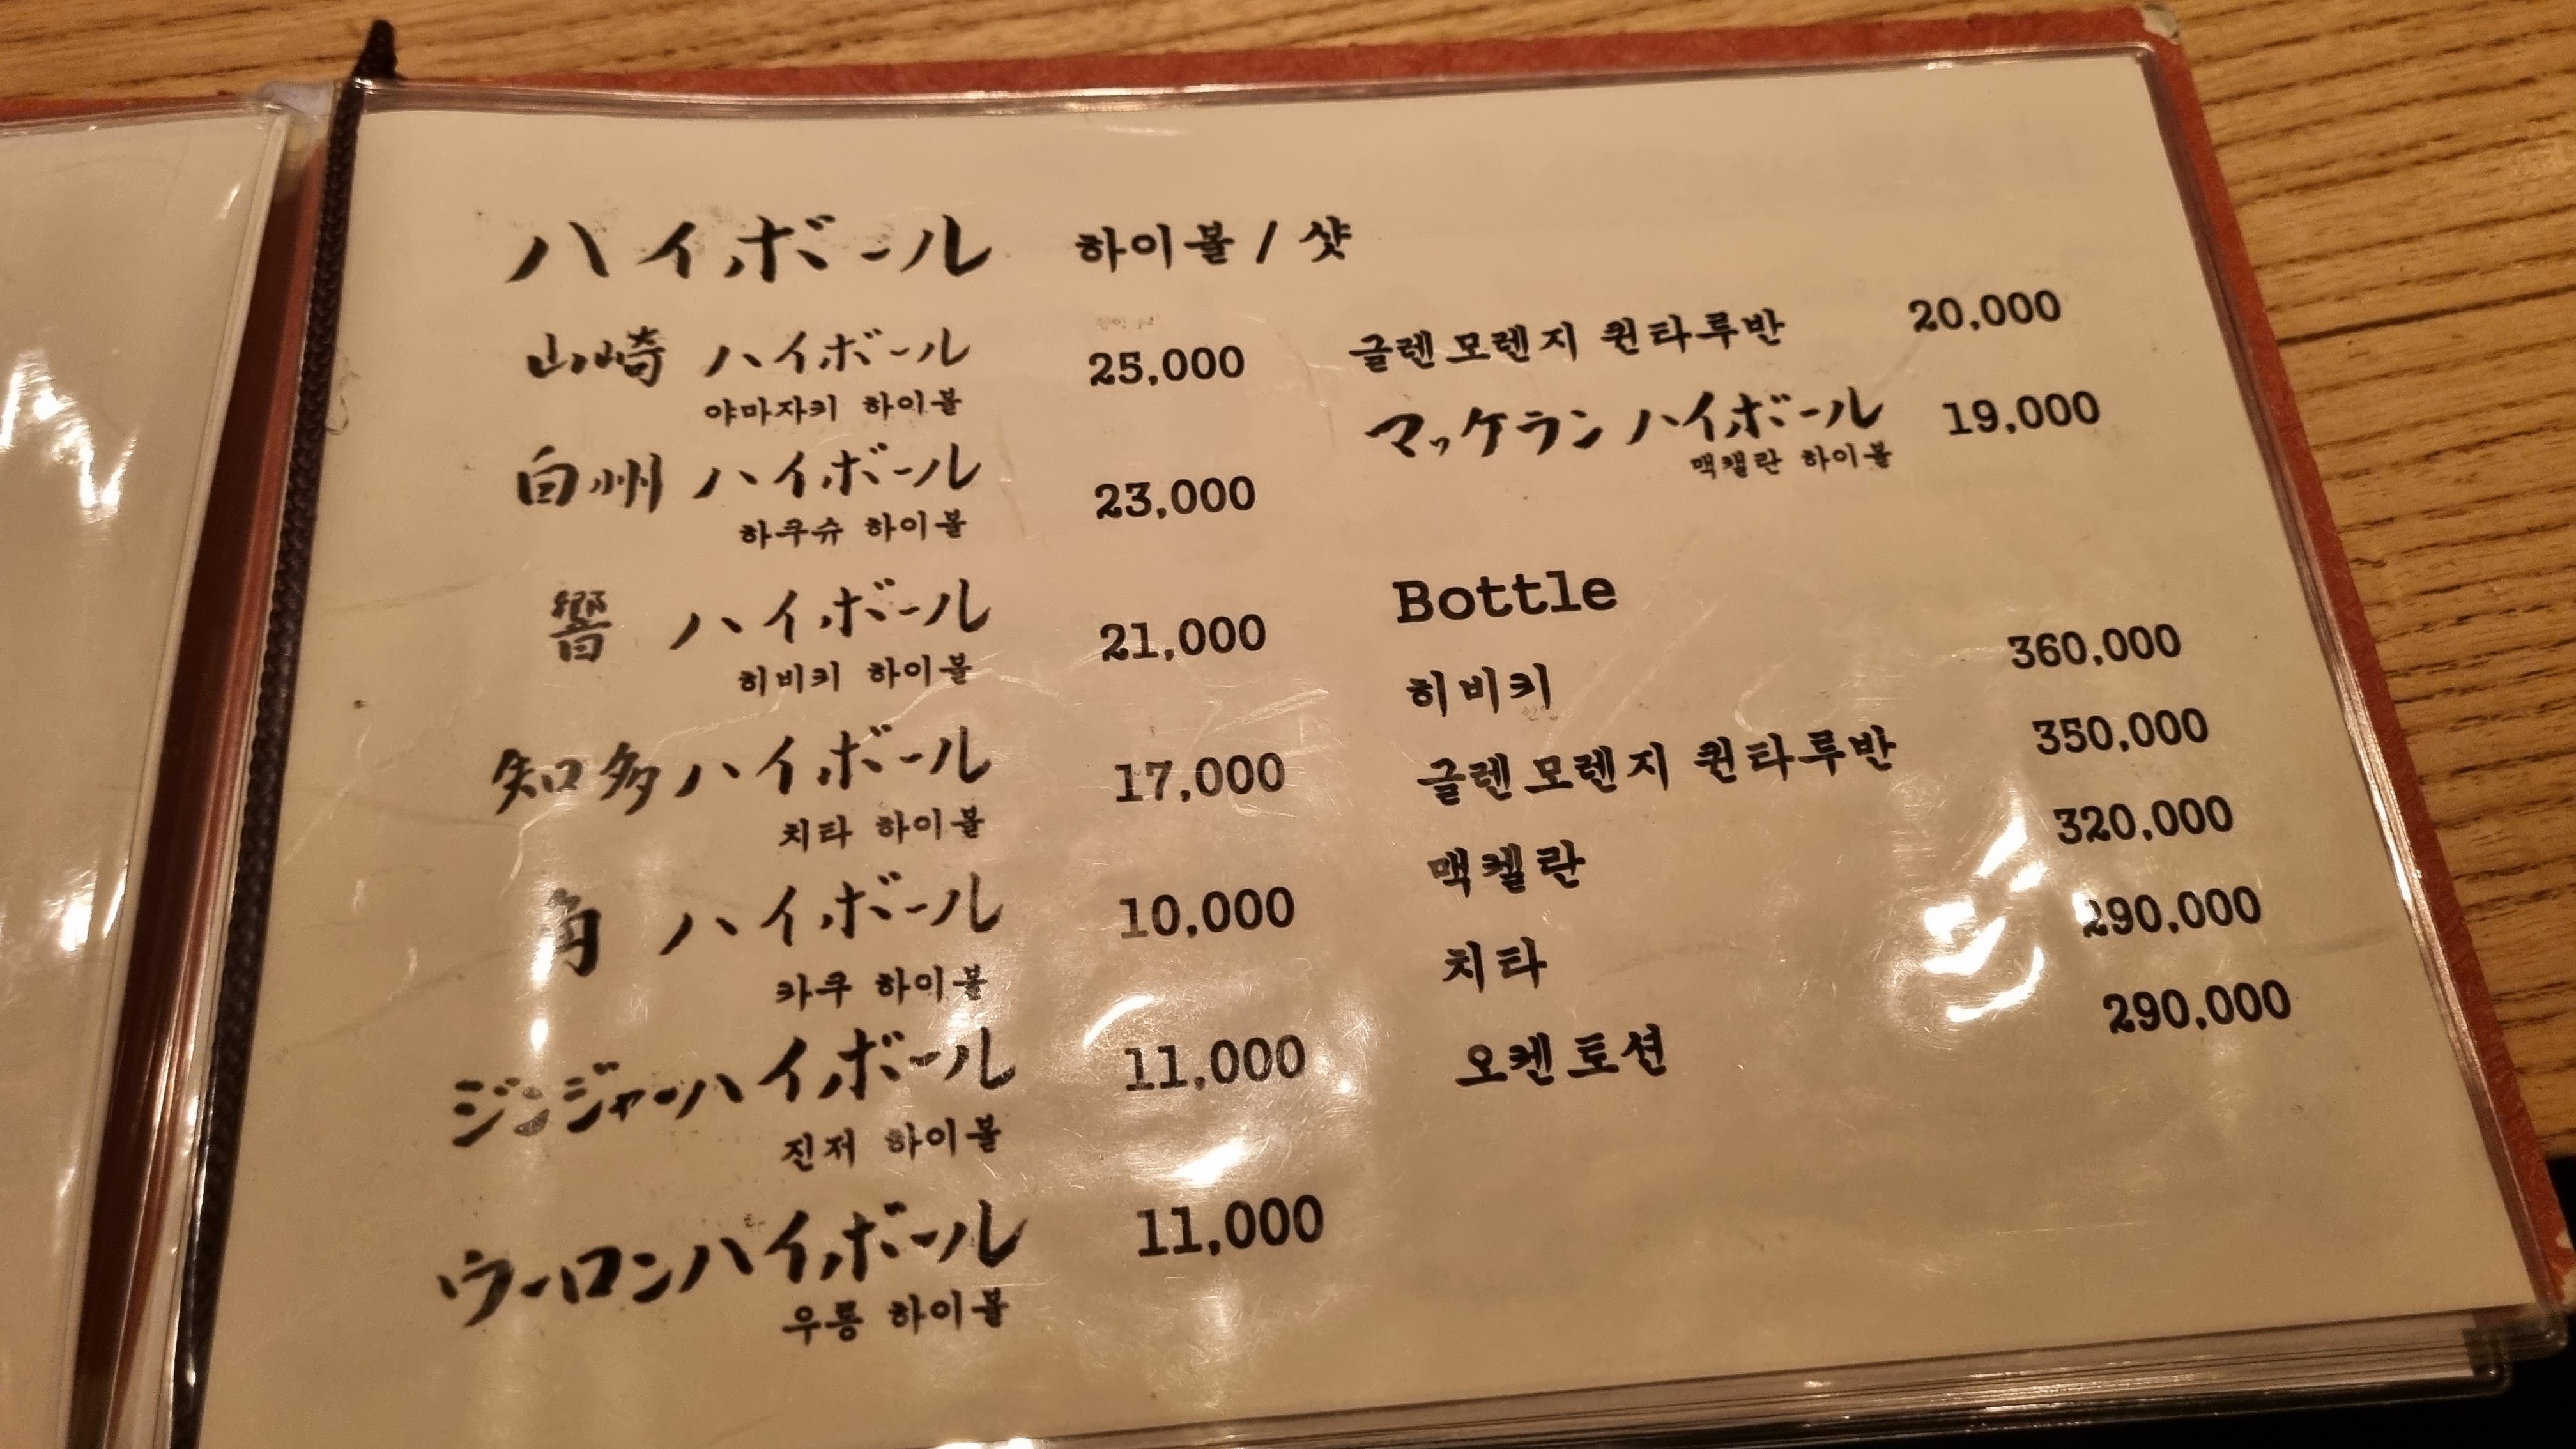 ハイボール 하이볼 / 샷
山崎 ハイボール 25,000
야마자키 하이볼
白州 ハイボール 23,000
하쿠슈 하이볼
響 ハイボール 21,000
히비키 하이볼
知多ハイボール 17,000
치타 하이볼
角 ハイボール 10,000
카쿠 하이볼
ジンジャーハイボール 11,000
진저 하이볼
ウーロンハイボール 11,000
우롱 하이볼
글렌모렌지 퀸타루반 20,000
マッケランハイボール 19,000
맥캘란 하이볼
Bottle
히비키 360,000
글렌모렌지 퀸타루반 350,000
맥켈란 320,000
치타 290,000
오켄토션 290,000